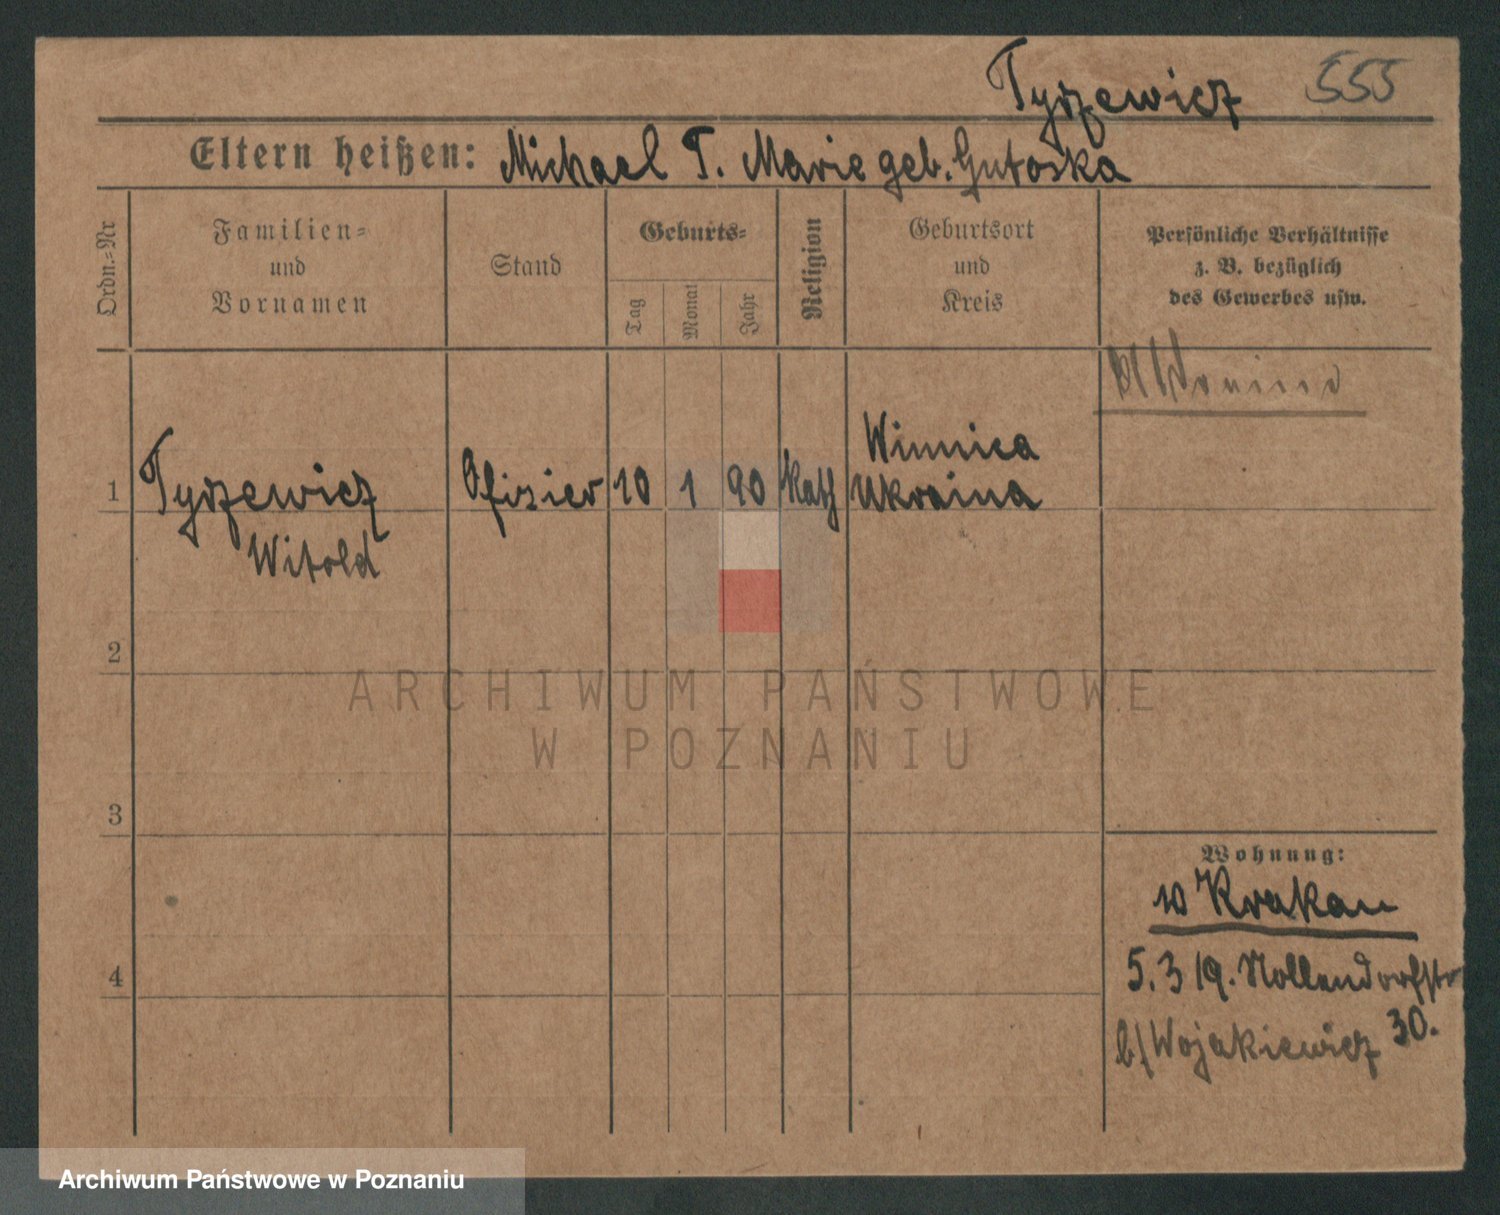 Tyszewicz 555
Eltern heißen: Michael T. Marie geb. Gutoska
Ordn.-Nr
Familien-
und
Vornamen
Stand
Geburts-
Tag
Monat
Jahr
Religion
Geburtsort
und
Kreis
Persönliche Verhältnisse
z. B. bezüglich
des Gewerbes usw.
Winnica
1 Tyszewicz Ofizier 10 1 90 Kath Ukraina
Witold
2
3
4
Wohnung:
w Krakau
5.3 19. Nollendorfstr
30.
b/ Wojakiewicz
ARCHIWUM PAŃSTWOWE
W POZNANIU
Archiwum Państwowe w Poznaniu